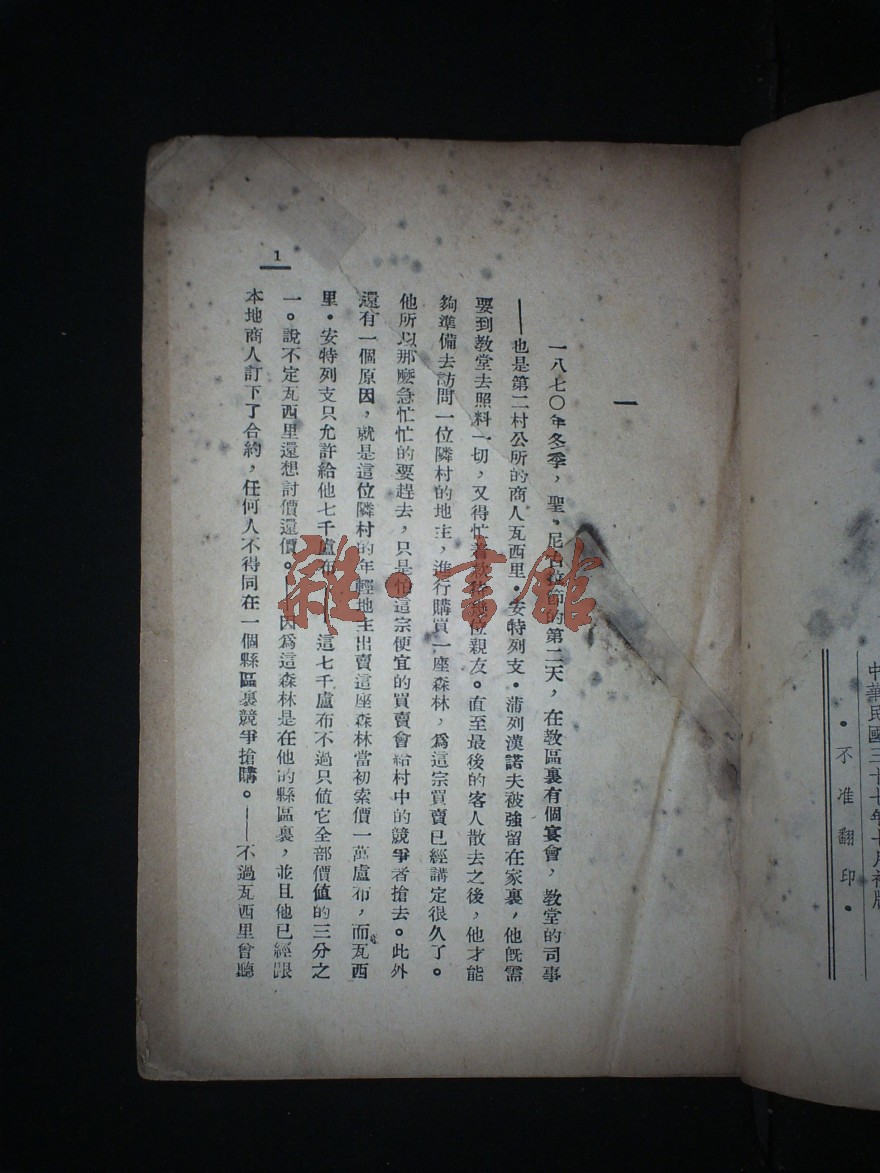 中華民國三十七年十月初版
•不准翻印•
一
一八七〇年冬季，聖•尼古拉節的第二天，在教區裏有個宴會，教堂的司事
——也是第二村公所的商人瓦西里•安特列支•蒲列漢諾夫被強留在家裏，他旣需
要到教堂去照料一切，又得忙着款待幾位親友。直至最後的客人散去之後，他才能
夠準備去訪問一位隣村的地主，進行購買一座森林，爲這宗買賣已經講定很久了。
他所以那麼急忙忙的要趕去，只是怕這宗便宜的買賣會給村中的競爭者搶去。此外
還有一個原因，就是這位隣村的年輕地主出賣這座森林當初索價一萬盧布，而瓦西
里•安特列支只允許給他七千盧布——這七千盧布不過只値它全部價値的三分之
一。說不定瓦西里還想討價還價。——因爲這森林是在他的縣區裏，並且他已經跟
本地商人訂下了合約，任何人不得同在一個縣區裏競爭搶購。——不過瓦西里曾聽
1
雜•書館